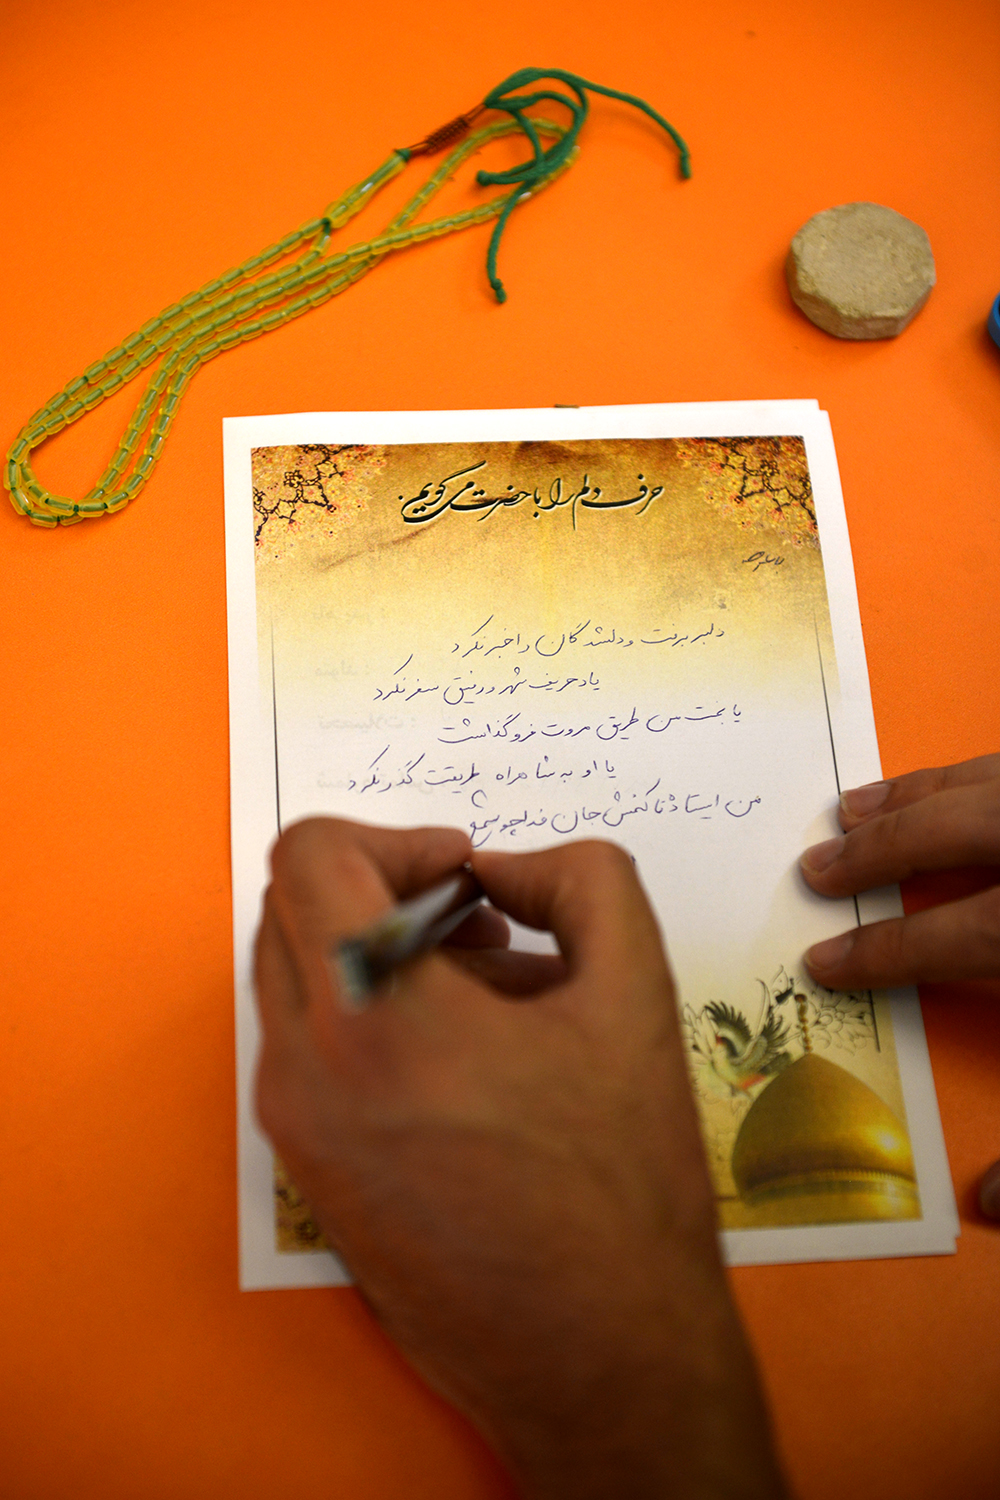 حرف دلم را با حضرت می گویم:
باسلام
دلبر برفت و دلشدگان را خبر نکرد
یاد حریف شهر و رفیق سفر نکرد
یا بخت من طریق مروت فروگذاشت
یا او به شاهراه طریقت گذر نکرد
من ایستاده تا کنمش جان فدا چو شمع